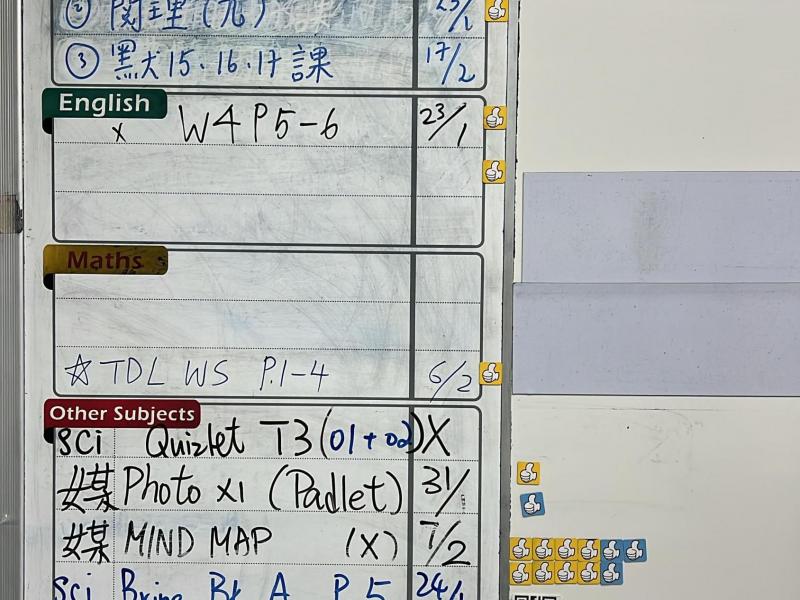 ② 閱理(九) 23/1
③ 默犬15、16、17課 17/2
English
x W4 P5-6 23/1
Maths
☆TDL WS P.1-4 6/2
Other Subjects
sci Quizlet T3(01+02) X
媒 Photo x1 (Padlet) 31/1
媒 MIND MAP (X) 7/2
sci Bring Bk A P.5 24/1